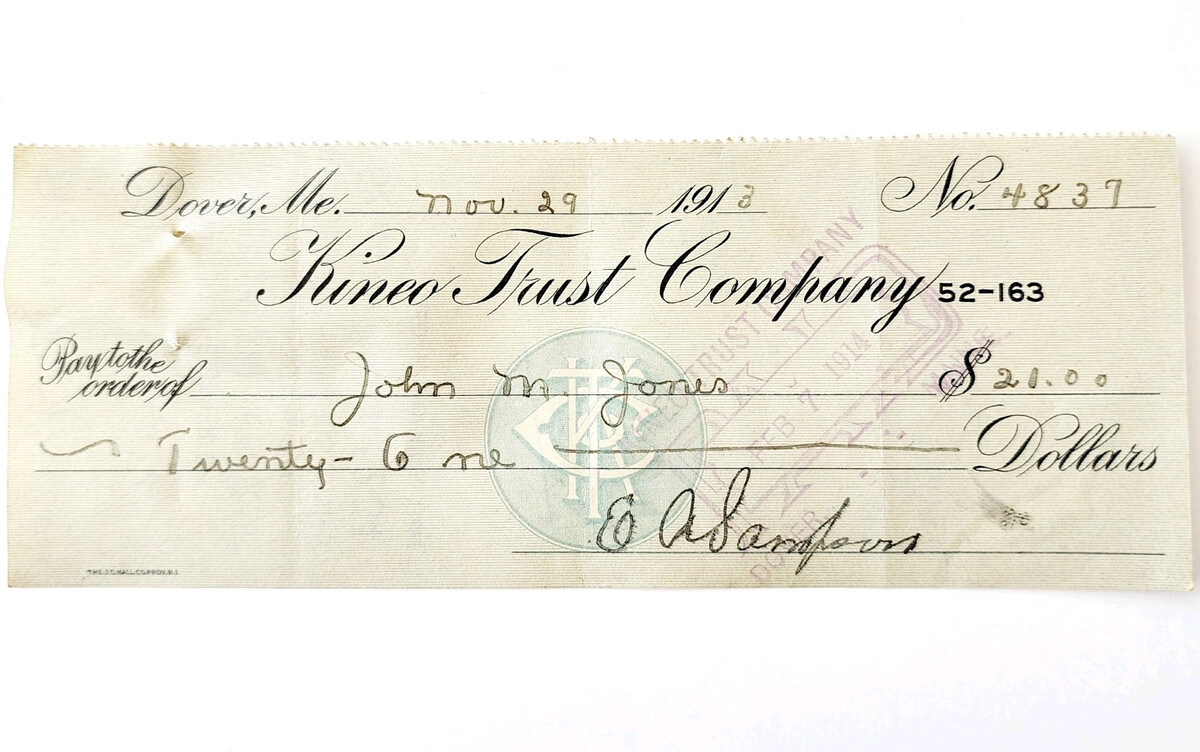 Dover, Me. Nov. 29 1913 No. 4837
Kineo Trust Company 52-163
Pay to the order of John M. Jones $ 21.00
Twenty-One Dollars
E A Sampson
TRUST COMPANY
FEB 7 1914
DOVER
THE J.C. HALL CO. PROV. R.I.